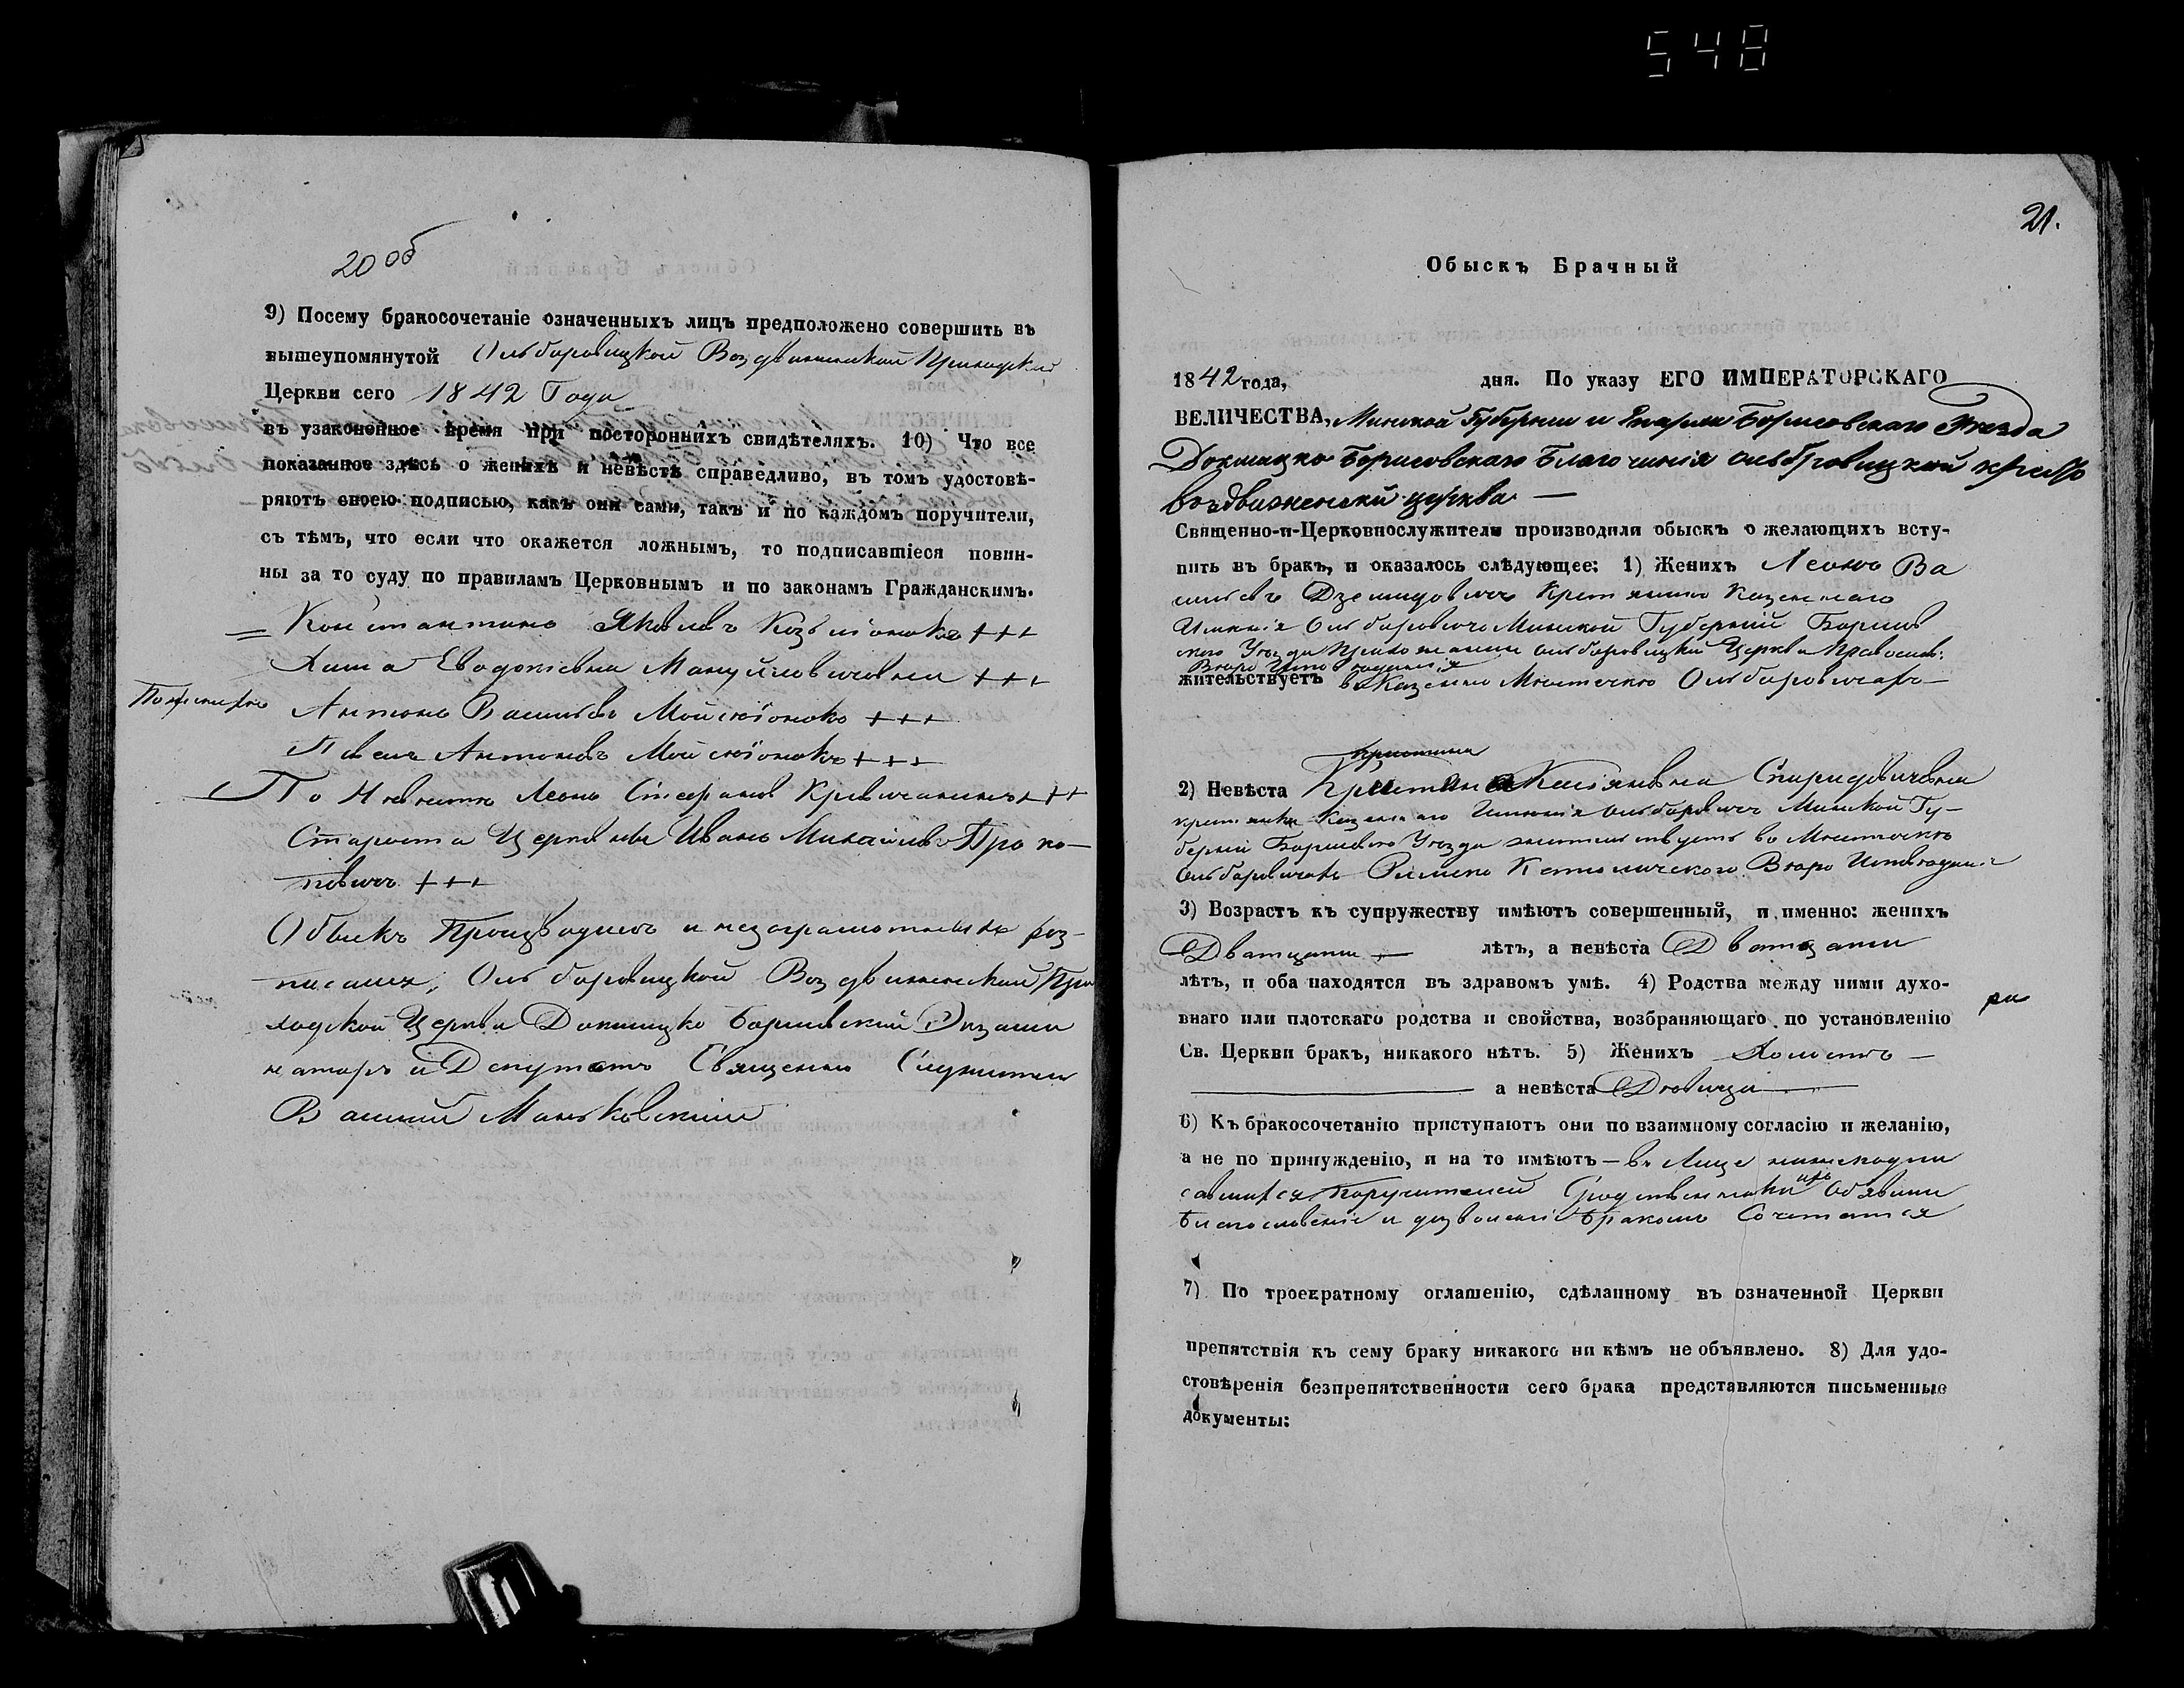 548
20 об
9) Посему бракосочетаніе означенныхъ лицъ предположено совершить въ
вышеупомянутой Ольбаровицкой Воздвиженской Приходской
Церкви сего 1842 Года
въ узаконенное время при постороннихъ свидѣтеляхъ. 10) Что все
показанное здѣсь о женихѣ и невѣстѣ справедливо, въ томъ удостовѣ-
ряютъ своею подписью, какъ они сами, такъ и по каждомъ поручители,
съ тѣмъ, что если что окажется ложнымъ, то подписавшіеся повин-
ны за то суду по правиламъ Церковнымъ и по законамъ Гражданскимъ.
Константинъ Яковлевъ +++
Евдокіевна Мануйловичовна +++
Антонъ Васильевъ +++
Антоновъ +++
По Невѣсте Леонъ Стефановъ Кривичанинъ +++
Староста Церковны Иванъ Михайловъ Проко-
повичъ +++
Обыскъ Производилъ и незаграмотныхъ роз-
писалъ, Ольбаровицкой Воздвиженской При
ходской Церкви Докшицко Борисовский Визыти
наторъ и Депутатъ Священно Служитель
Василий Маньковский
21.
Обыскъ Брачный
1842 года, дня. По указу ЕГО ИМПЕРАТОРСКАГО
ВЕЛИЧЕСТВА, Минской Губернии и Епархии Борисовскаго Уезда
Докшицко Борисовскаго Благочинія Ольбровицкой кресто
воздвиженской церкви —
Священно-и-Церковнослужители производили обыскъ о желающихъ всту-
пить въ бракъ, и оказалось слѣдующее: 1) Женихъ Леонъ Ва
сильевъ Дземидовичъ Крестьянинъ Казеннаго
Имѣнія Ольбаровичъ Минской Губерній Борисов
скаго Уѣзда Прихожанинъ Ольбаровицкой Церкви Православ:
жительствуетъ въ Казенномъ Мѣстечкѣ Ольбаровичахъ —
2) Невѣста Кристина Касіяновна Спиридовичовна
крестьянка Казеннаго Имѣнія Ольбаровичъ Минской Гу-
берній Борисовского Уѣзда жительствуетъ въ Мѣстечкѣ
Ольбаровичахъ Римско Католическаго Вѣро Исповѣданія
3) Возрастъ къ супружеству имѣютъ совершенный, и именно: женихъ
Дватцати — лѣтъ, а невѣста Дватцати
лѣтъ, и оба находятся въ здравомъ умѣ. 4) Родства между ними духо-
внаго или плотскаго родства и свойства, возбраняющаго по установленію
Св. Церкви бракъ, никакого нѣтъ. 5) Женихъ Холостъ —
а невѣста Дѣвица
6) Къ бракосочетанію приступаютъ они по взаимному согласію и желанію,
а не по принужденію, и на то имѣютъ — въ Лице нижеподпи
савшихся Поручителей Сродственники ихъ Объявили
Благословеніе и дозволеніе Бракомъ Сочетатся
7) По троекратному оглашенію, сдѣланному въ означенной Церкви
препятствія къ сему браку никакого ни кѣмъ не объявлено. 8) Для удо-
стовѣренія безпрепятственности сего брака представляются письменные
документы: